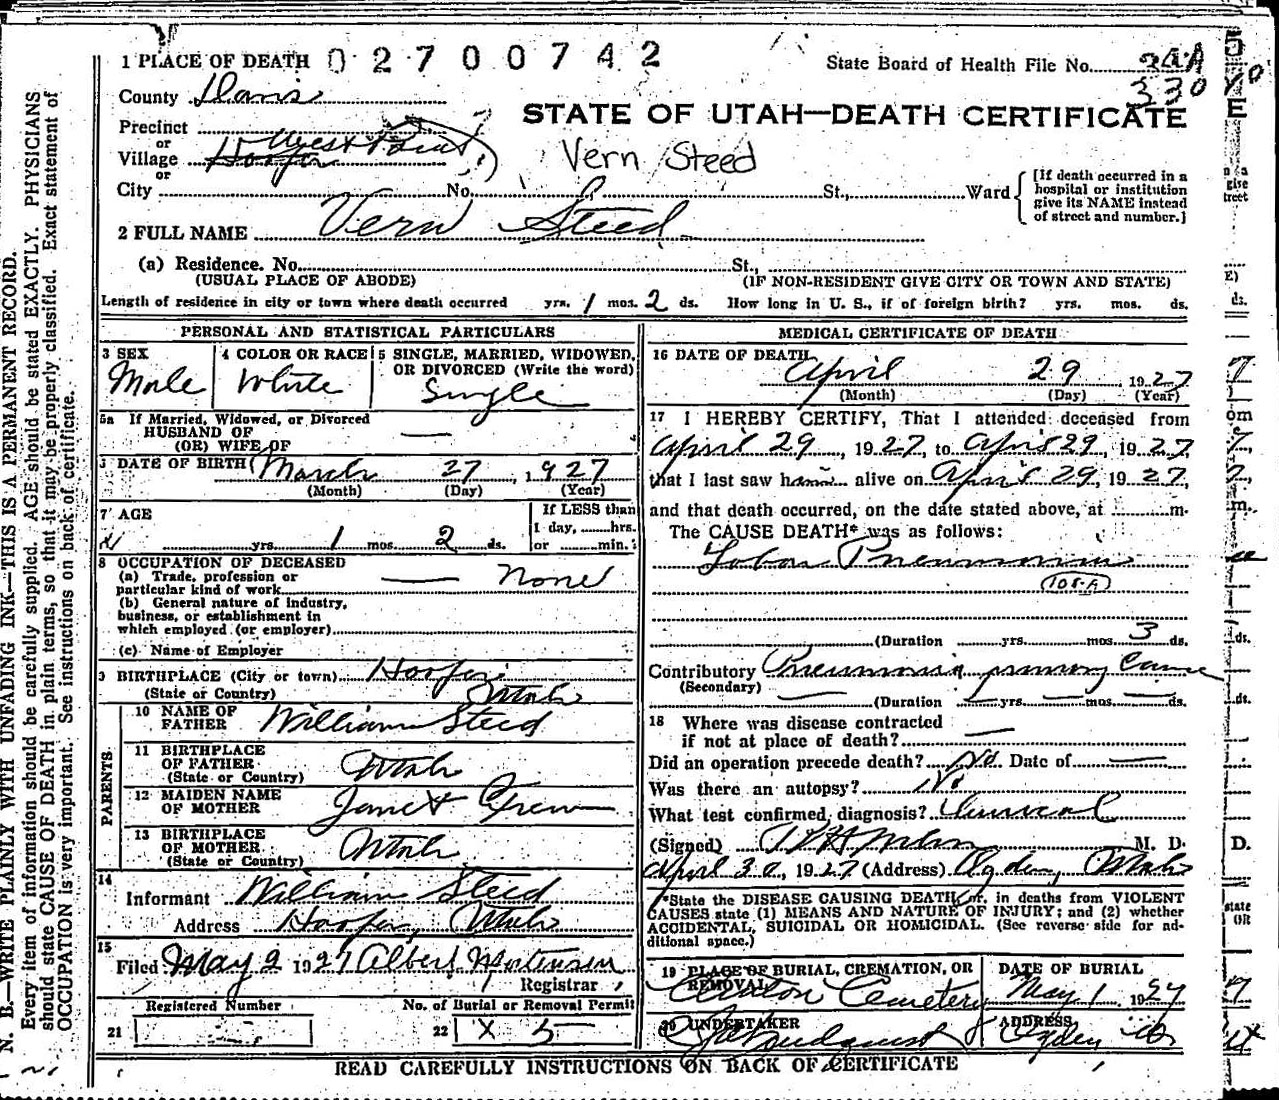 1 PLACE OF DEATH 02700742
State Board of Health File No. 24A
330
County Davis
STATE OF UTAH—DEATH CERTIFICATE
Precinct
or
Village Hooper West Point
or
Vern Steed
City No. St., Ward
[If death occurred in a
hospital or institution
give its NAME instead
of street and number.]
2 FULL NAME Vern Steed
(a) Residence. No. St.,
(USUAL PLACE OF ABODE) (IF NON-RESIDENT GIVE CITY OR TOWN AND STATE)
Length of residence in city or town where death occurred yrs. 1 mos. 2 ds. How long in U. S., if of foreign birth? yrs. mos. ds.
PERSONAL AND STATISTICAL PARTICULARS
3 SEX
Male
4 COLOR OR RACE
White
5 SINGLE, MARRIED, WIDOWED,
OR DIVORCED (Write the word)
Single
5a If Married, Widowed, or Divorced
HUSBAND OF —
(OR) WIFE OF
DATE OF BIRTH March 27, 1927
(Month) (Day) (Year)
7 AGE
yrs. 1 mos. 2 ds.
If LESS than
1 day, hrs.
or min.
8 OCCUPATION OF DECEASED
(a) Trade, profession or
particular kind of work — None
(b) General nature of industry,
business, or establishment in
which employed (or employer)
(c) Name of Employer
9 BIRTHPLACE (City or town) Hooper
(State or Country) Utah
PARENTS
10 NAME OF
FATHER William Steed
11 BIRTHPLACE
OF FATHER Utah
(State or Country)
12 MAIDEN NAME
OF MOTHER Janet
13 BIRTHPLACE
OF MOTHER Utah
(State or Country)
14
Informant William Steed
Address Hooper, Utah
15
Filed May 2 1927 Albert Mortensen
Registrar
Registered Number No. of Burial or Removal Permit
21 22 X 5
MEDICAL CERTIFICATE OF DEATH
16 DATE OF DEATH
April 29, 1927
(Month) (Day) (Year)
17 I HEREBY CERTIFY, That I attended deceased from
April 29, 1927, to April 29, 1927
that I last saw him alive on April 29, 1927,
and that death occurred, on the date stated above, at m.
The CAUSE DEATH* was as follows:
Lobar Pneumonia
108-A
(Duration yrs. mos. 3 ds.
Contributory Pneumonia primary Cause
(Secondary) — (Duration — yrs. — mos. — ds.
18 Where was disease contracted
if not at place of death? —
Did an operation precede death? No. Date of —
Was there an autopsy? No
What test confirmed diagnosis? Clinical
(Signed) M. D.
April 30, 1927 (Address) Ogden, Utah
*State the DISEASE CAUSING DEATH, or, in deaths from VIOLENT
CAUSES state (1) MEANS AND NATURE OF INJURY; and (2) whether
ACCIDENTAL, SUICIDAL OR HOMICIDAL. (See reverse side for ad-
ditional space.)
19 PLACE OF BURIAL, CREMATION, OR
REMOVAL
Clinton Cemetery
DATE OF BURIAL
May 1 1927
20 UNDERTAKER
ADDRESS
Ogden
READ CAREFULLY INSTRUCTIONS ON BACK OF CERTIFICATE
N. B.—WRITE PLAINLY WITH UNFADING INK—THIS IS A PERMANENT RECORD.
Every item of information should be carefully supplied. AGE should be stated EXACTLY. PHYSICIANS
should state CAUSE OF DEATH in plain terms, so that it may be properly classified. Exact statement of
OCCUPATION is very important. See instructions on back of certificate.